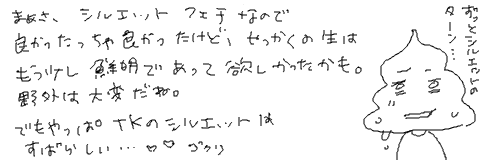 まぁさ、シルエット フェチ なので
良かったっちゃ良かったけど、せっかくの生は
もう少し 鮮明で あって 欲しかったかも。
野外は 大変だね。
でもやっぱ。TKの シルエットは
すばらしい… ♡♡ ゴクリ
ずっとシルエットの
ターン…